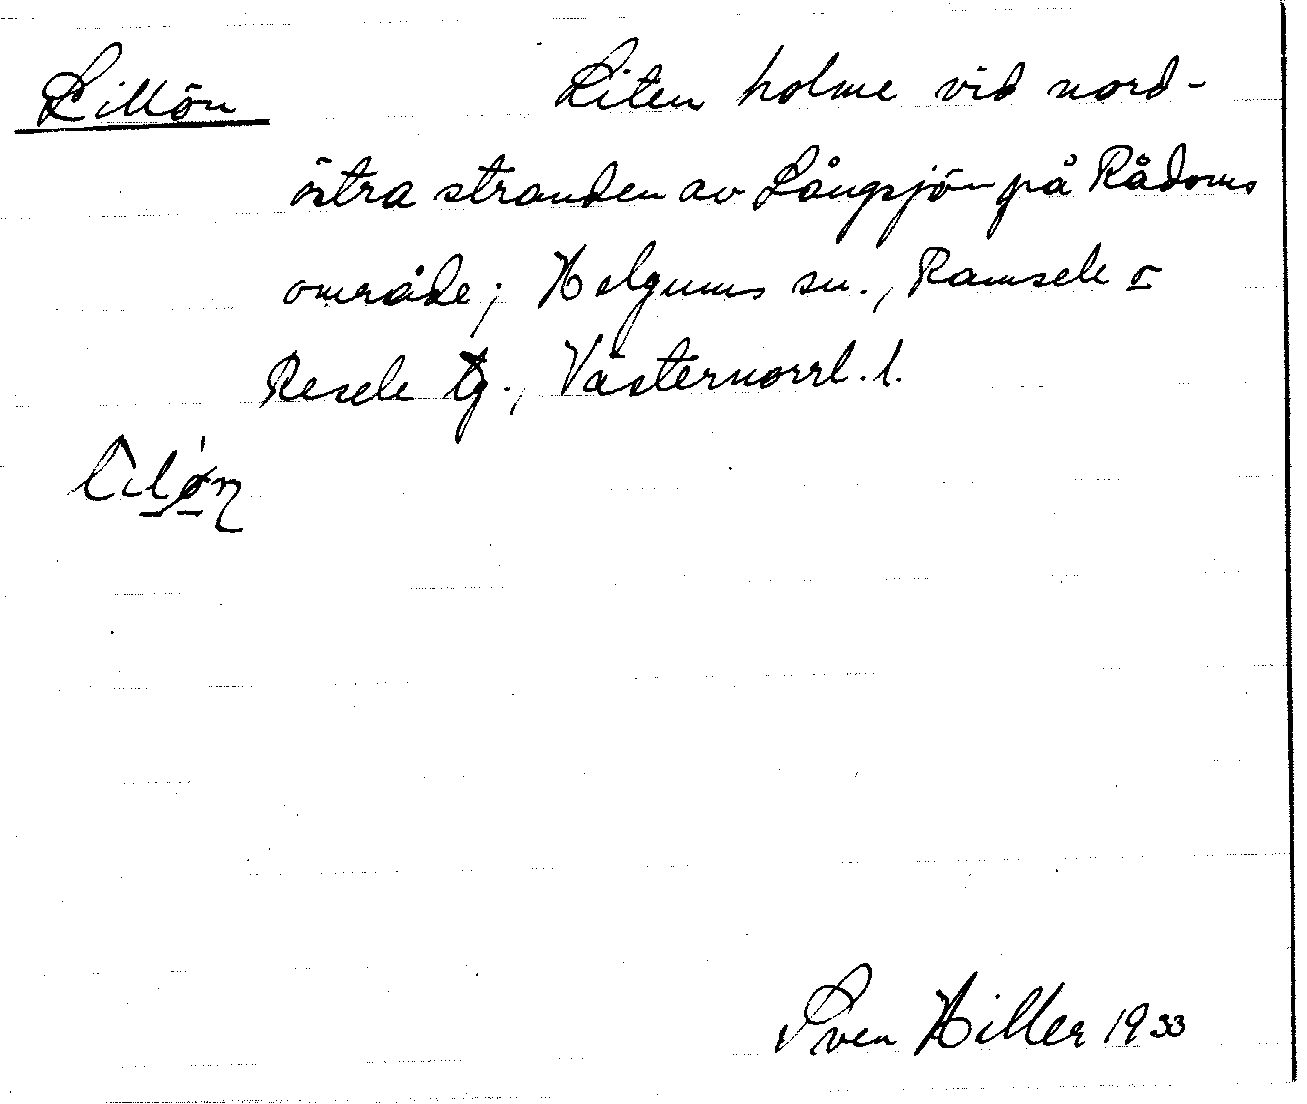 Lillön Liten holme vid nord-
östra stranden av Långsjön på Rådoms
område; Helgums sn., Ramsele o
Resele tg., Västernorrl. l.
Sven Hiller 1933